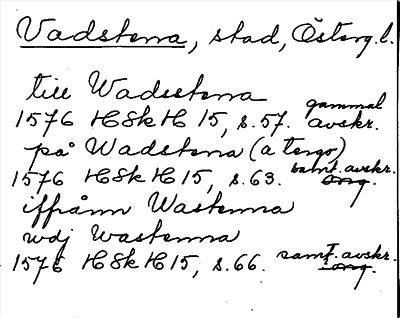 Vadstena, stad, Österg.l.
till Wadsstena
1576 HSkH 15, s.57. gammal avskr.
på Wadstena (a tergo)
1576 HSkH 15, s.63. samt. avskr.
iffrånn Wastenna
wdj Wastenna
1576 HSkH 15, s.66. samt. avskr.